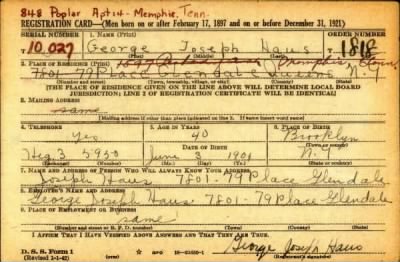 848 Poplar Apt 14 - Memphis, Tenn.
REGISTRATION CARD—(Men born on or after February 17, 1897 and on or before December 31, 1921)
SERIAL NUMBER 1. NAME (Print) ORDER NUMBER
10,027 George Joseph Haus 1818
(First) (Middle) (Last)
2. PLACE OF RESIDENCE (Print) Memphis, Tenn.
7801-79 Place Glendale Queens N-Y
(Number and street) (Town, township, village, or city) (County) (State)
[THE PLACE OF RESIDENCE GIVEN ON THE LINE ABOVE WILL DETERMINE LOCAL BOARD
JURISDICTION; LINE 2 OF REGISTRATION CERTIFICATE WILL BE IDENTICAL]
3. MAILING ADDRESS
same
4. TELEPHONE 5. AGE IN YEARS 6. PLACE OF BIRTH
Yes 40 Brooklyn
DATE OF BIRTH
Heg 3 5950 June 3 1901 N.Y.
7. NAME AND ADDRESS OF PERSON WHO WILL ALWAYS KNOW YOUR ADDRESS
Joseph Haus 7801-79 Place Glendale
8. EMPLOYER'S NAME AND ADDRESS
George Joseph Haus 7801-79 Place Glendale
9. PLACE OF EMPLOYMENT OR BUSINESS
same
(Number and street or R. F. D. number) (Town) (County) (State)
I AFFIRM THAT I HAVE VERIFIED ABOVE ANSWERS AND THAT THEY ARE TRUE.
D. S. S. Form 1
(Revised 1-1-42) (over) George Joseph Haus